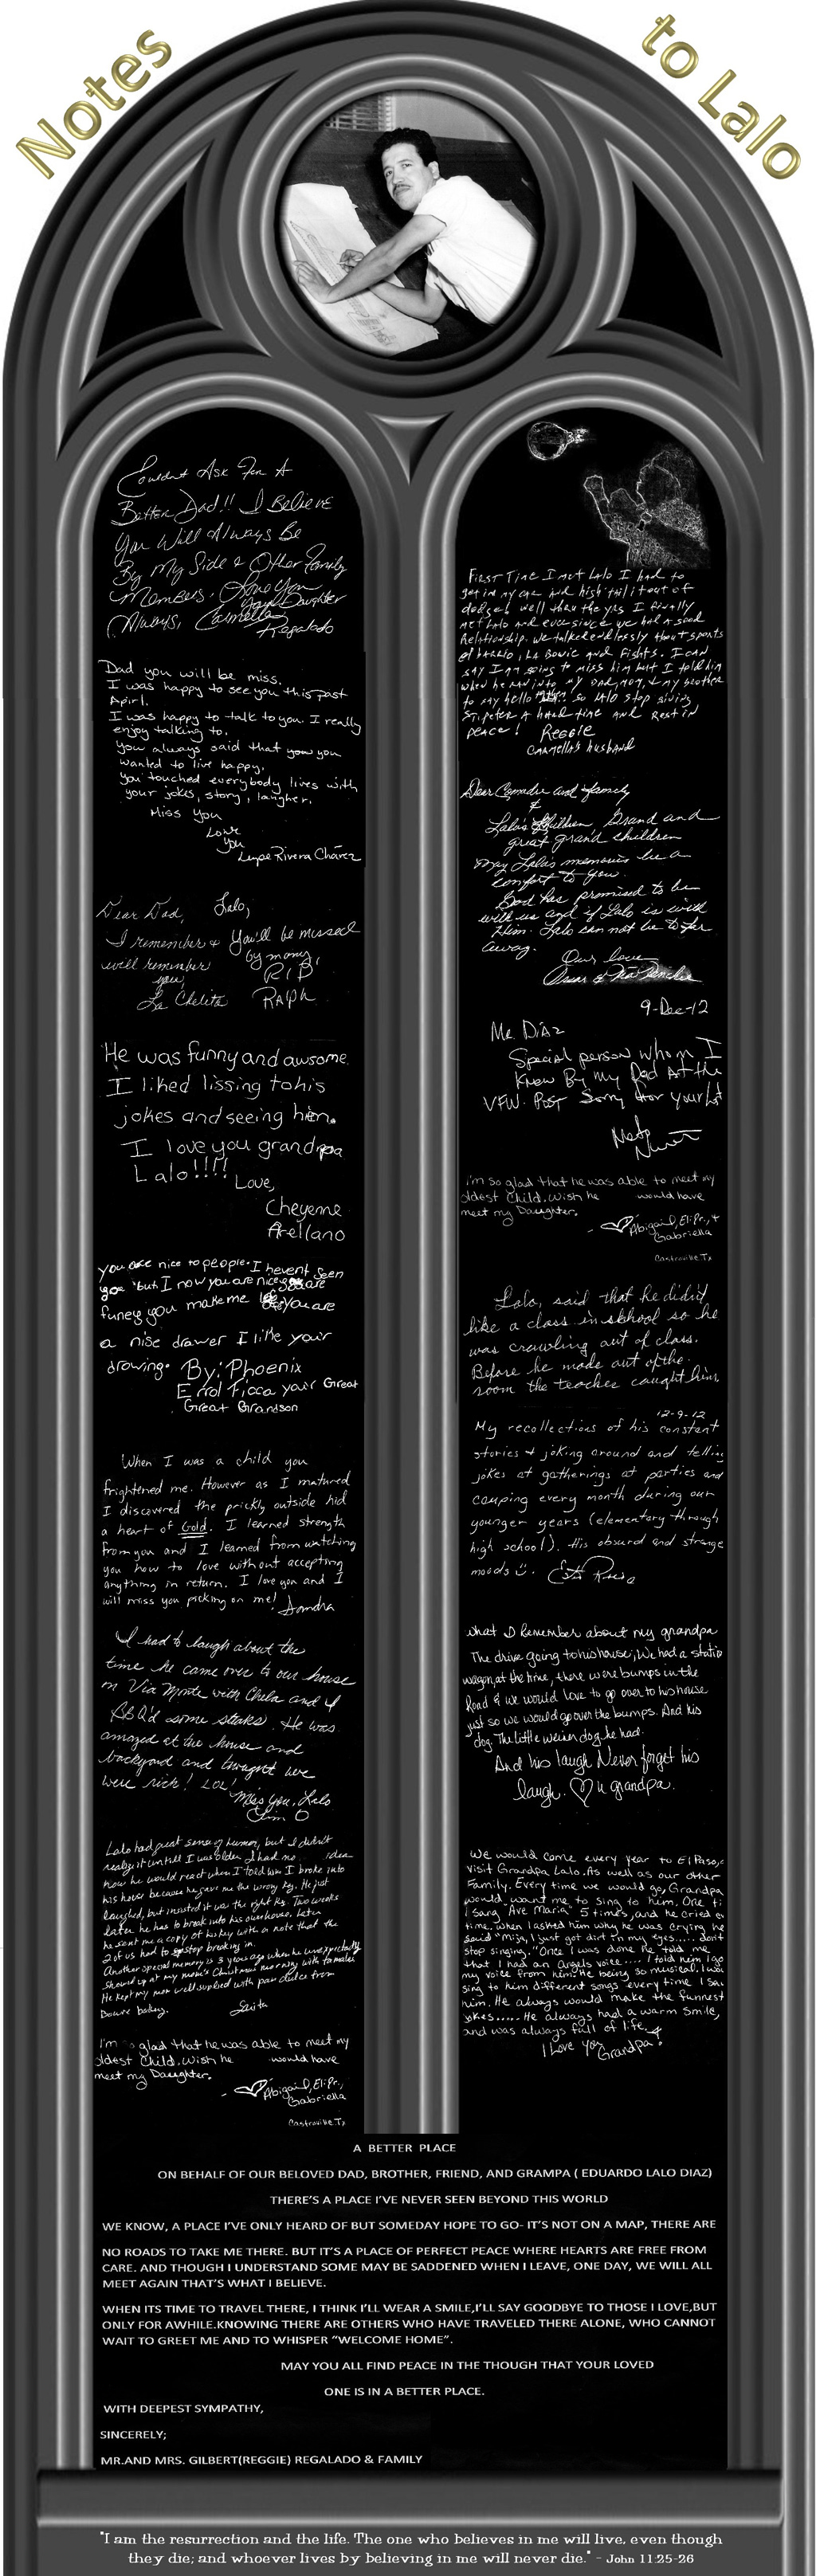 Notes to Lalo
Couldnt Ask For A
Better Dad!! I Believe
You Will Always Be
By My Side & Other Family
Members. Love You
Your Daughter
Always, Carmella
Regalado
Dad you will be miss.
I was happy to see you this past
Apirl.
I was happy to talk to you. I really
enjoy talking to.
You always said that you you
wanted to live happy.
you touched everybody lives with
your jokes, story, laugher.
Miss You
Love
You
Lupe Rivera Chávez
Dear Dad,
I remember &
will remember
you,
La Chelita
Lalo,
You'll be missed
by many
RIP
RAlph
He was funny and awsome.
I liked lissing to his
jokes and seeing him.
I love you grandpa
Lalo!!!!
Love,
Cheyenne
Arellano
you are nice to people. I hevent seen
you but I now you are nice you are
funey you make me you are
a nise drawer I like your
drowing. By: Phoenix
Errol Ficca your Great
Great Grandson
When I was a child you
frightened me. However as I matured
I discovered the prickly outside hid
a heart of Gold. I learned strength
from you and I learned from watching
you how to love without accepting
anything in return. I love you and I
will miss you picking on me! Sondra
I had to laugh about the
time he came over to our house
on Via Monte with Chela and I
BBQ'd some steaks. He was
amazed at the house and
backyard and thought we
were rich! LOL!
Miss you, Lalo
Jim O
Lalo had great sense of humor, but I didn't
realize it untill I was older. I had no idea
how he would react when I told him I broke into
his house because he gave me the wrong key. He just
laughed, but insisted it was the right key. Two weeks
later he has to break into his own house. Later
he sent me a copy of his key with a note that the
2 of us had to stop breaking in.
Another special memory is 3 years ago when he unexpectedly
showed up at my mom's Christmas morning with tamales
He kept my mom well supplied with pan dulce from
Bowie bakery.
Sarita
I'm glad that he was able to meet my
oldest Child. Wish he would have
meet my Daughter.
- Abigail, Eli Pr.,
Gabriella
Castroville, Tx
First Time I met Lalo I had to
get in my car and high tail it out of
dodge! well thru the yrs I finally
met Lalo and ever since we had a good
Relationship. We talked endlessly about sports
el barrio, La Bowie and Fights. I can
say I am going to miss him but I told him
when he ran into my Dad, mom, & my brother
to say hello so Lalo stop giving
St. peter a hard time and Rest in
peace! Reggie
Carmella's Husband
Dear Comadre and family
&
Lalo's Children Grand and
great grand children
May Lalo's memories be a
comfort to you.
God has promised to be
with us and if Lalo is with
Him. Lalo can not be to far
away.
Our love
Oscar &
9-Dec-12
Mr. Diaz
Special person whom I
Knew By my Dad At the
VFW. Post Sorry for your
i'm so glad that he was able to meet my
oldest Child. Wish he would have
meet my Daughter.
- Abigail, Eli Pr., &
Gabriella
Castroville Tx
Lalo, said that he didn't
like a class in skhool so he
was crawling out of class.
Before he made out of the
room the teacher caught him.
12-9-12
My recollections of his constant
stories & joking around and telling
jokes at gatherings at parties and
camping every month during our
younger years (elementary through
high school). His absurd and strange
moods
what I Remember about my grandpa
The drive going to his house; We had a statio
wagon, at the time, there were bumps in the
Road & we would love to go over to his house
just so we would go over the bumps. And his
dog. The little weiner dog he had.
And his laugh. Never forget his
laugh. ♡ u grandpa.
We would come every year to El Paso, c
visit Grandpa Lalo. As well as our other
Family. Every time we would go, Grandpa
would want me to sing to him, One ti
I sang "Ave Maria" 5 times, and he cried ev
time. When I asked him why he was crying, he
said "Mija, I just got dirt in my eyes..... don't
stop singing." Once I was done he told me
that I had an angels voice.... I told him I go
my voice from him. He being so musical. I wou
sing to him different songs every time I sa
him. He always would make the funnest
jokes..... He always had a warm smile,
and was always full of life.
I Love You Grandpa!
A BETTER PLACE
ON BEHALF OF OUR BELOVED DAD, BROTHER, FRIEND, AND GRAMPA ( EDUARDO LALO DIAZ)
THERE'S A PLACE I'VE NEVER SEEN BEYOND THIS WORLD
WE KNOW, A PLACE I'VE ONLY HEARD OF BUT SOMEDAY HOPE TO GO- IT'S NOT ON A MAP, THERE ARE
NO ROADS TO TAKE ME THERE. BUT IT'S A PLACE OF PERFECT PEACE WHERE HEARTS ARE FREE FROM
CARE. AND THOUGH I UNDERSTAND SOME MAY BE SADDENED WHEN I LEAVE, ONE DAY, WE WILL ALL
MEET AGAIN THAT'S WHAT I BELIEVE.
WHEN ITS TIME TO TRAVEL THERE, I THINK I'LL WEAR A SMILE,I'LL SAY GOODBYE TO THOSE I LOVE,BUT
ONLY FOR AWHILE.KNOWING THERE ARE OTHERS WHO HAVE TRAVELED THERE ALONE, WHO CANNOT
WAIT TO GREET ME AND TO WHISPER "WELCOME HOME".
MAY YOU ALL FIND PEACE IN THE THOUGH THAT YOUR LOVED
ONE IS IN A BETTER PLACE.
WITH DEEPEST SYMPATHY,
SINCERELY;
MR.AND MRS. GILBERT(REGGIE) REGALADO & FAMILY
"I am the resurrection and the life. The one who believes in me will live, even though
they die; and whoever lives by believing in me will never die." - John 11:25-26